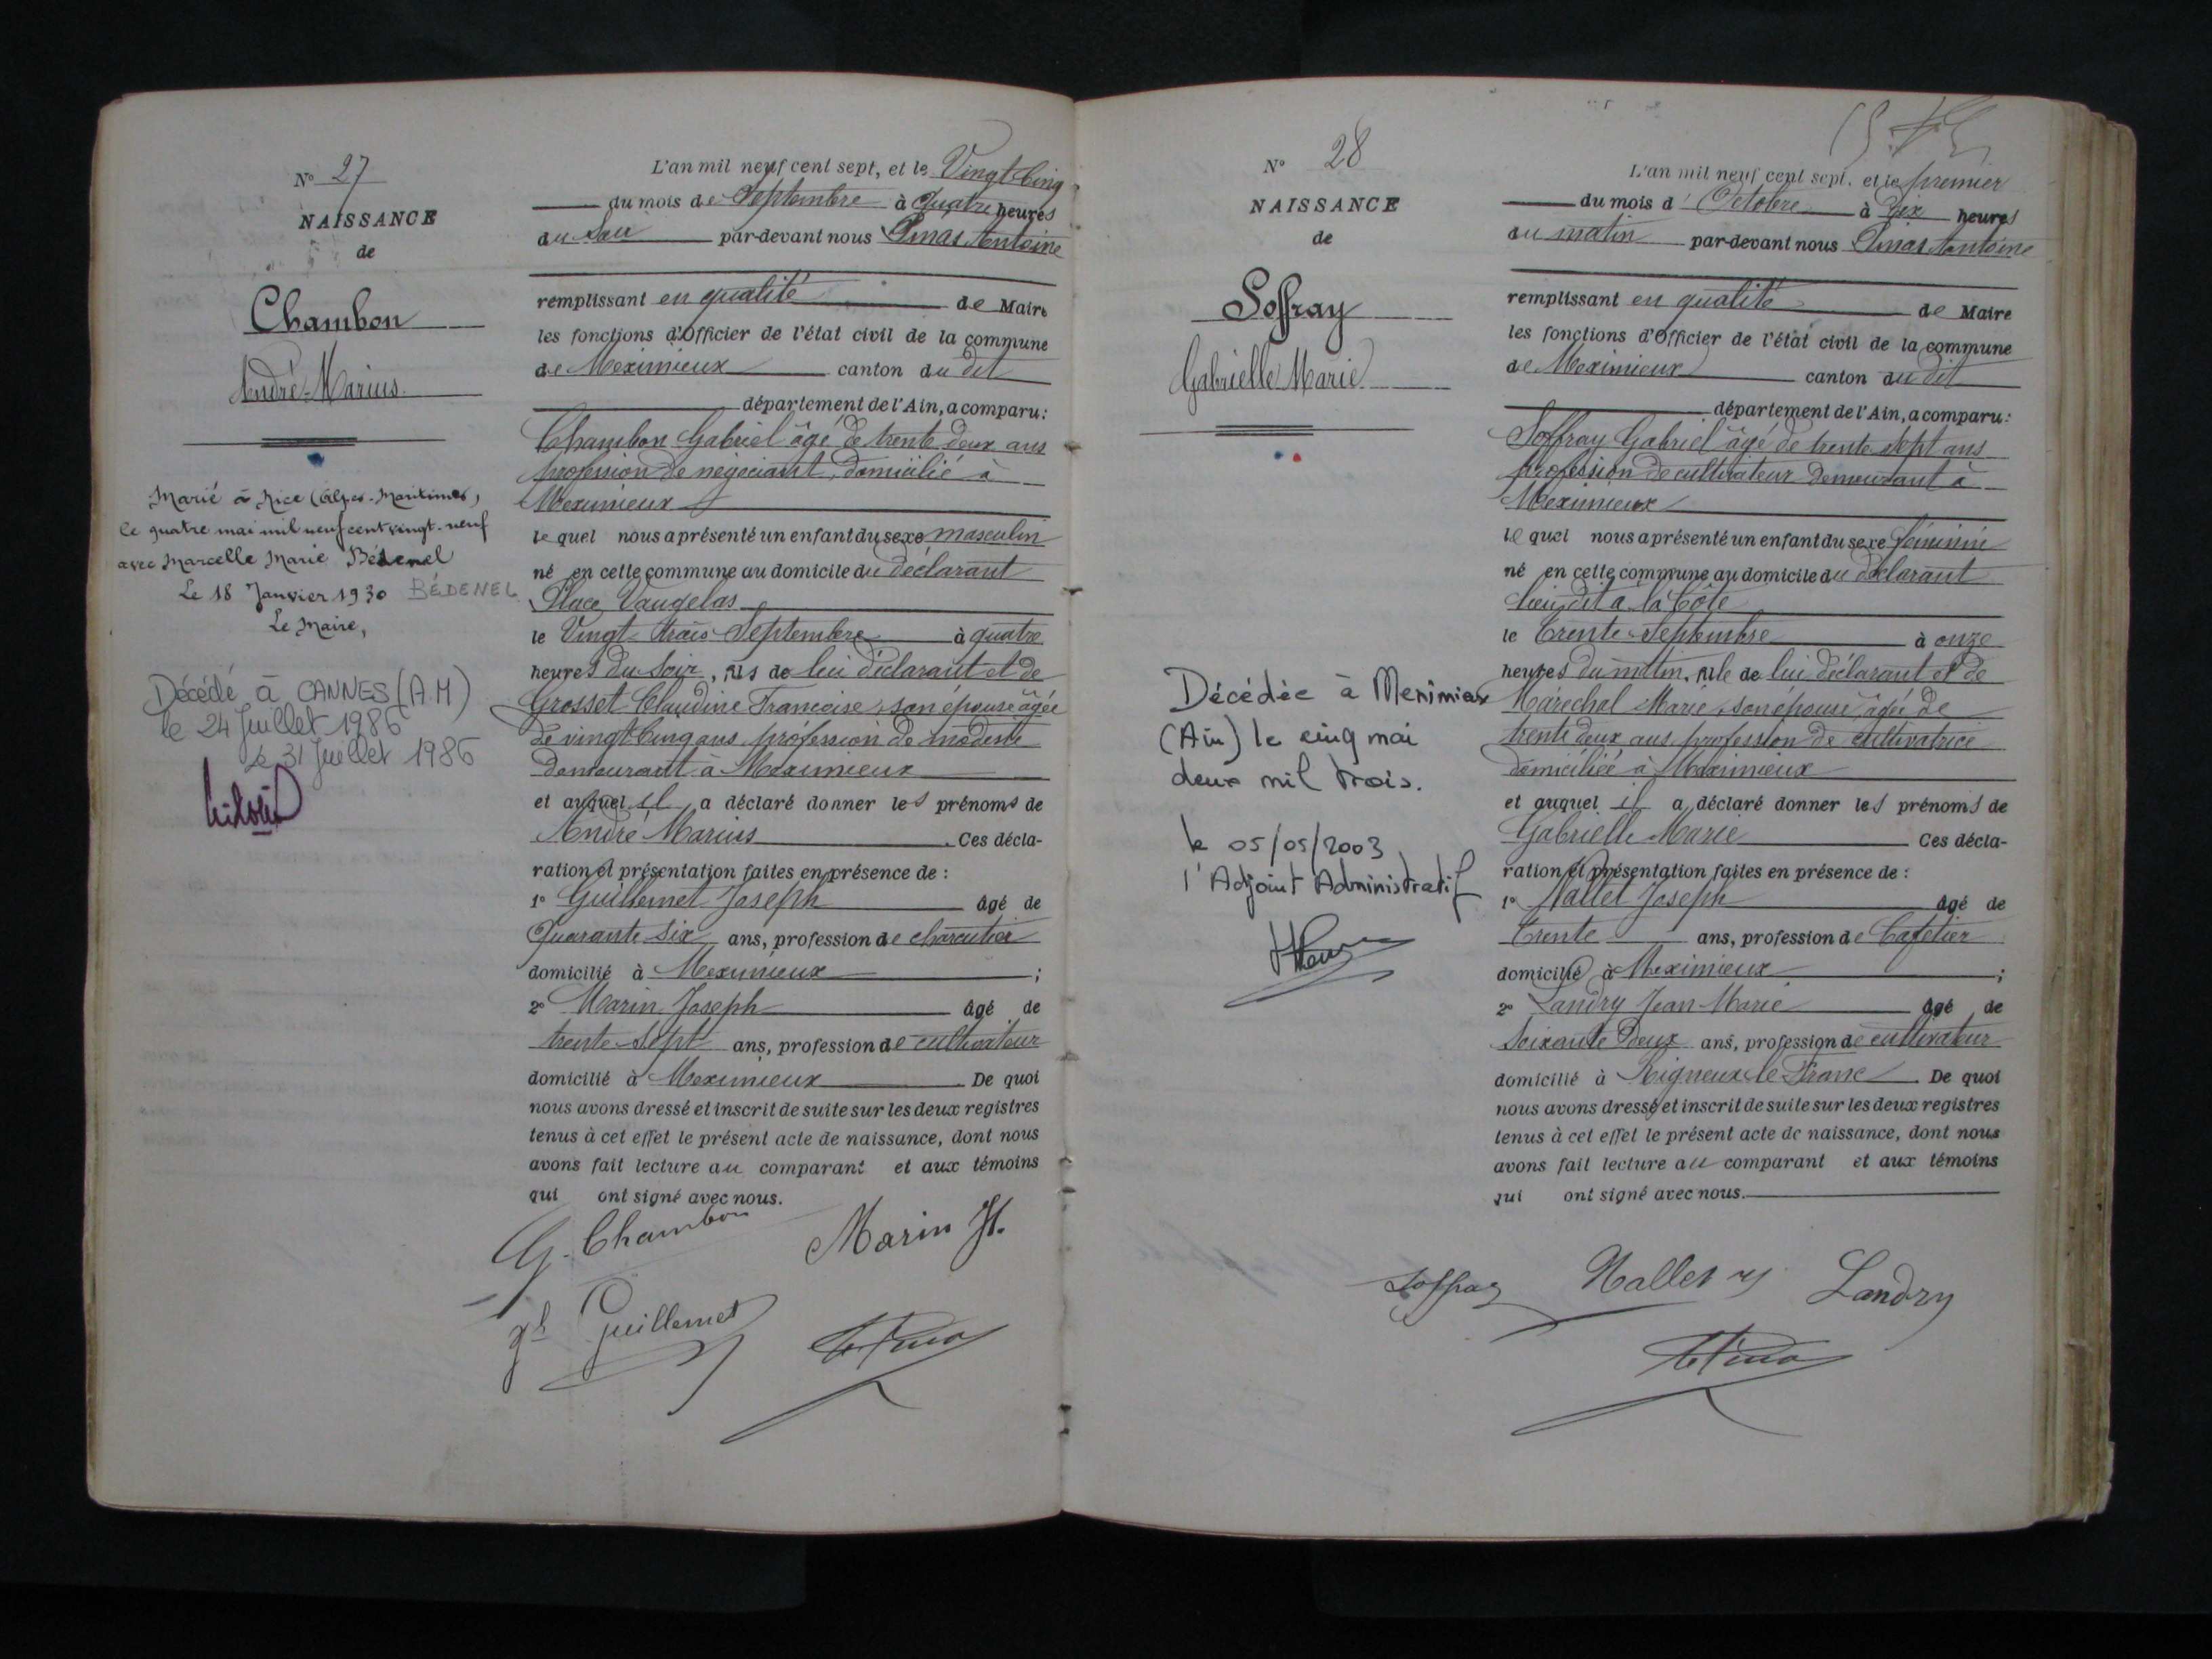 N° 27
NAISSANCE
de
Chambon
André-Marius.
Marié à Nice (Alpes-Maritimes),
le quatre mai mil neuf cent vingt-neuf
avec Marcelle Marie Bédenel
Le 18 Janvier 1930 BÉDENEL
Le Maire,
Décédé à CANNES (A.M)
le 24 Juillet 1986
Le 31 Juillet 1986
L'an mil neuf cent sept, et le Vingt Cinq
du mois de Septembre à Quatre heures
du soir par-devant nous Pinas Antoine
remplissant en qualité de Maire
les fonctions d'Officier de l'état civil de la commune
de Meximieux canton du dit
département de l'Ain, a comparu:
Chambon Gabriel âgé de trente deux ans
profession de négociant, domicilié à
Meximieux
le quel nous a présenté un enfant du sexe masculin
né en cette commune au domicile du déclarant
Place Vaugelas
le Vingt-trois Septembre à quatre
heures du soir, fils de lui déclarant et de
Grosset Claudine Francoise, son épouse âgée
de vingt Cinq ans profession de modiste
demeurant à Meximieux
et auquel il a déclaré donner les prénoms de
André Marius. Ces décla-
ration et présentation faites en présence de :
1° Guillemet Joseph âgé de
Quarante six ans, profession de charcutier
domicilié à Meximieux ;
2° Marin Joseph âgé de
trente-sept ans, profession de cultivateur
domicilié à Meximieux De quoi
nous avons dressé et inscrit de suite sur les deux registres
tenus à cet effet le présent acte de naissance, dont nous
avons fait lecture au comparant et aux témoins
qui ont signé avec nous.
G. Chambon Marin Jh.
Jh Guillemet
N° 28
NAISSANCE
de
Soffray
Gabrielle Marie
Décédée à Meximieux
(Ain) le cinq mai
deux mil trois.
le 05/05/2003
l'Adjoint Administratif
L'an mil neuf cent sept, et le premier
du mois d'Octobre à dix heures
du matin par-devant nous Pinas Antoine
remplissant en qualité de Maire
les fonctions d'Officier de l'état civil de la commune
de Meximieux canton du dit
département de l'Ain, a comparu:
Soffray Gabriel âgé de trente sept ans
profession de cultivateur demeurant à
Meximieux
le quel nous a présenté un enfant du sexe féminin
né en cette commune au domicile du déclarant
lieu dit à la Côte
le Trente-Septembre à onze
heures du matin, fille de lui déclarant et de
Maréchal Marie, son épouse, âgée de
trente deux ans profession de cultivatrice
domiciliée à Meximieux
et auquel il a déclaré donner les prénoms de
Gabrielle Marie Ces décla-
ration et présentation faites en présence de :
1° Nallet Joseph âgé de
Trente ans, profession de Cafetier
domicilié à Meximieux ;
2° Landry Jean-Marie âgé de
Soixante Deux ans, profession de cultivateur
domicilié à Rigneux le Franc. De quoi
nous avons dressé et inscrit de suite sur les deux registres
tenus à cet effet le présent acte de naissance, dont nous
avons fait lecture au comparant et aux témoins
qui ont signé avec nous.
Soffray Nallet Landry